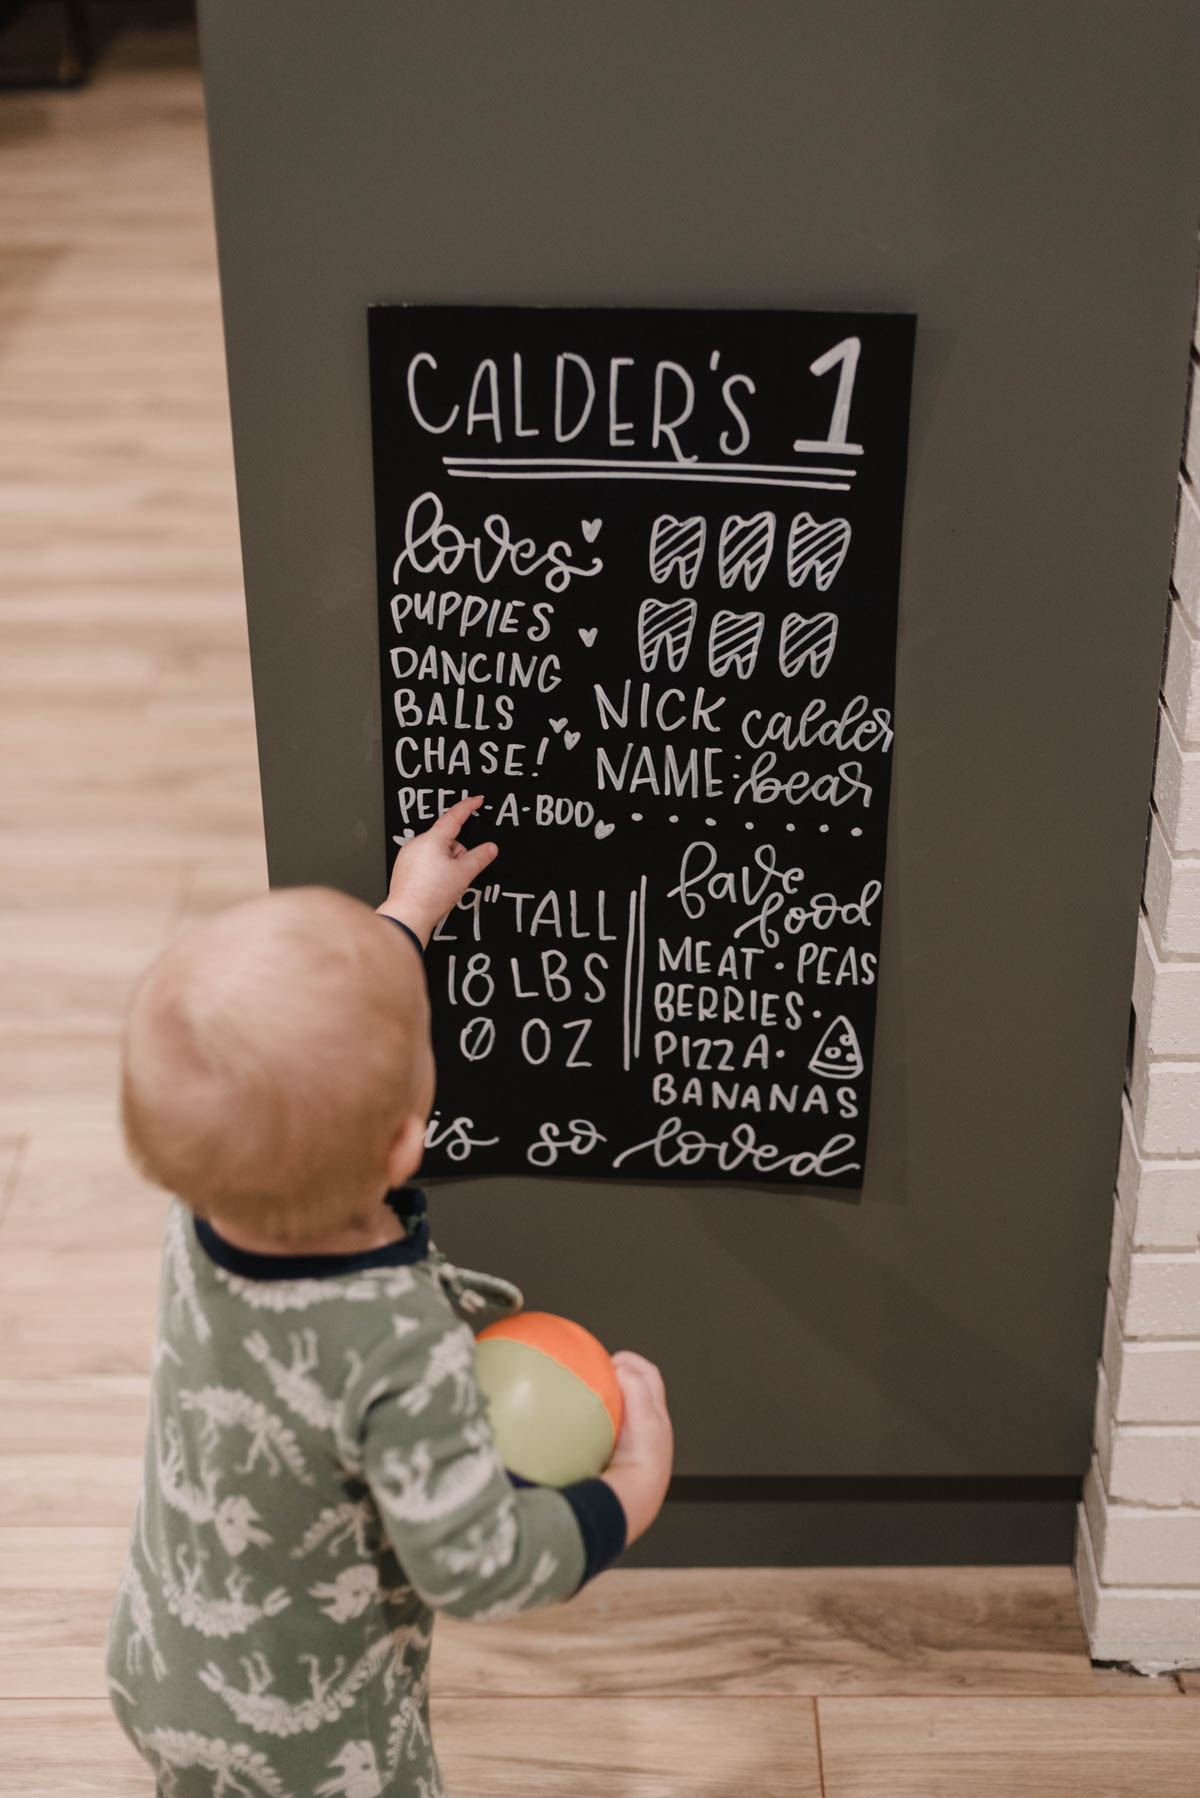 CALDER'S 1
loves
PUPPIES
DANCING
BALLS
CHASE!
PEEK-A-BOO
NICK
NAME: calder
bear
29" TALL
18 LBS
0 OZ
fave
food
MEAT · PEAS
BERRIES ·
PIZZA ·
BANANAS
is so loved